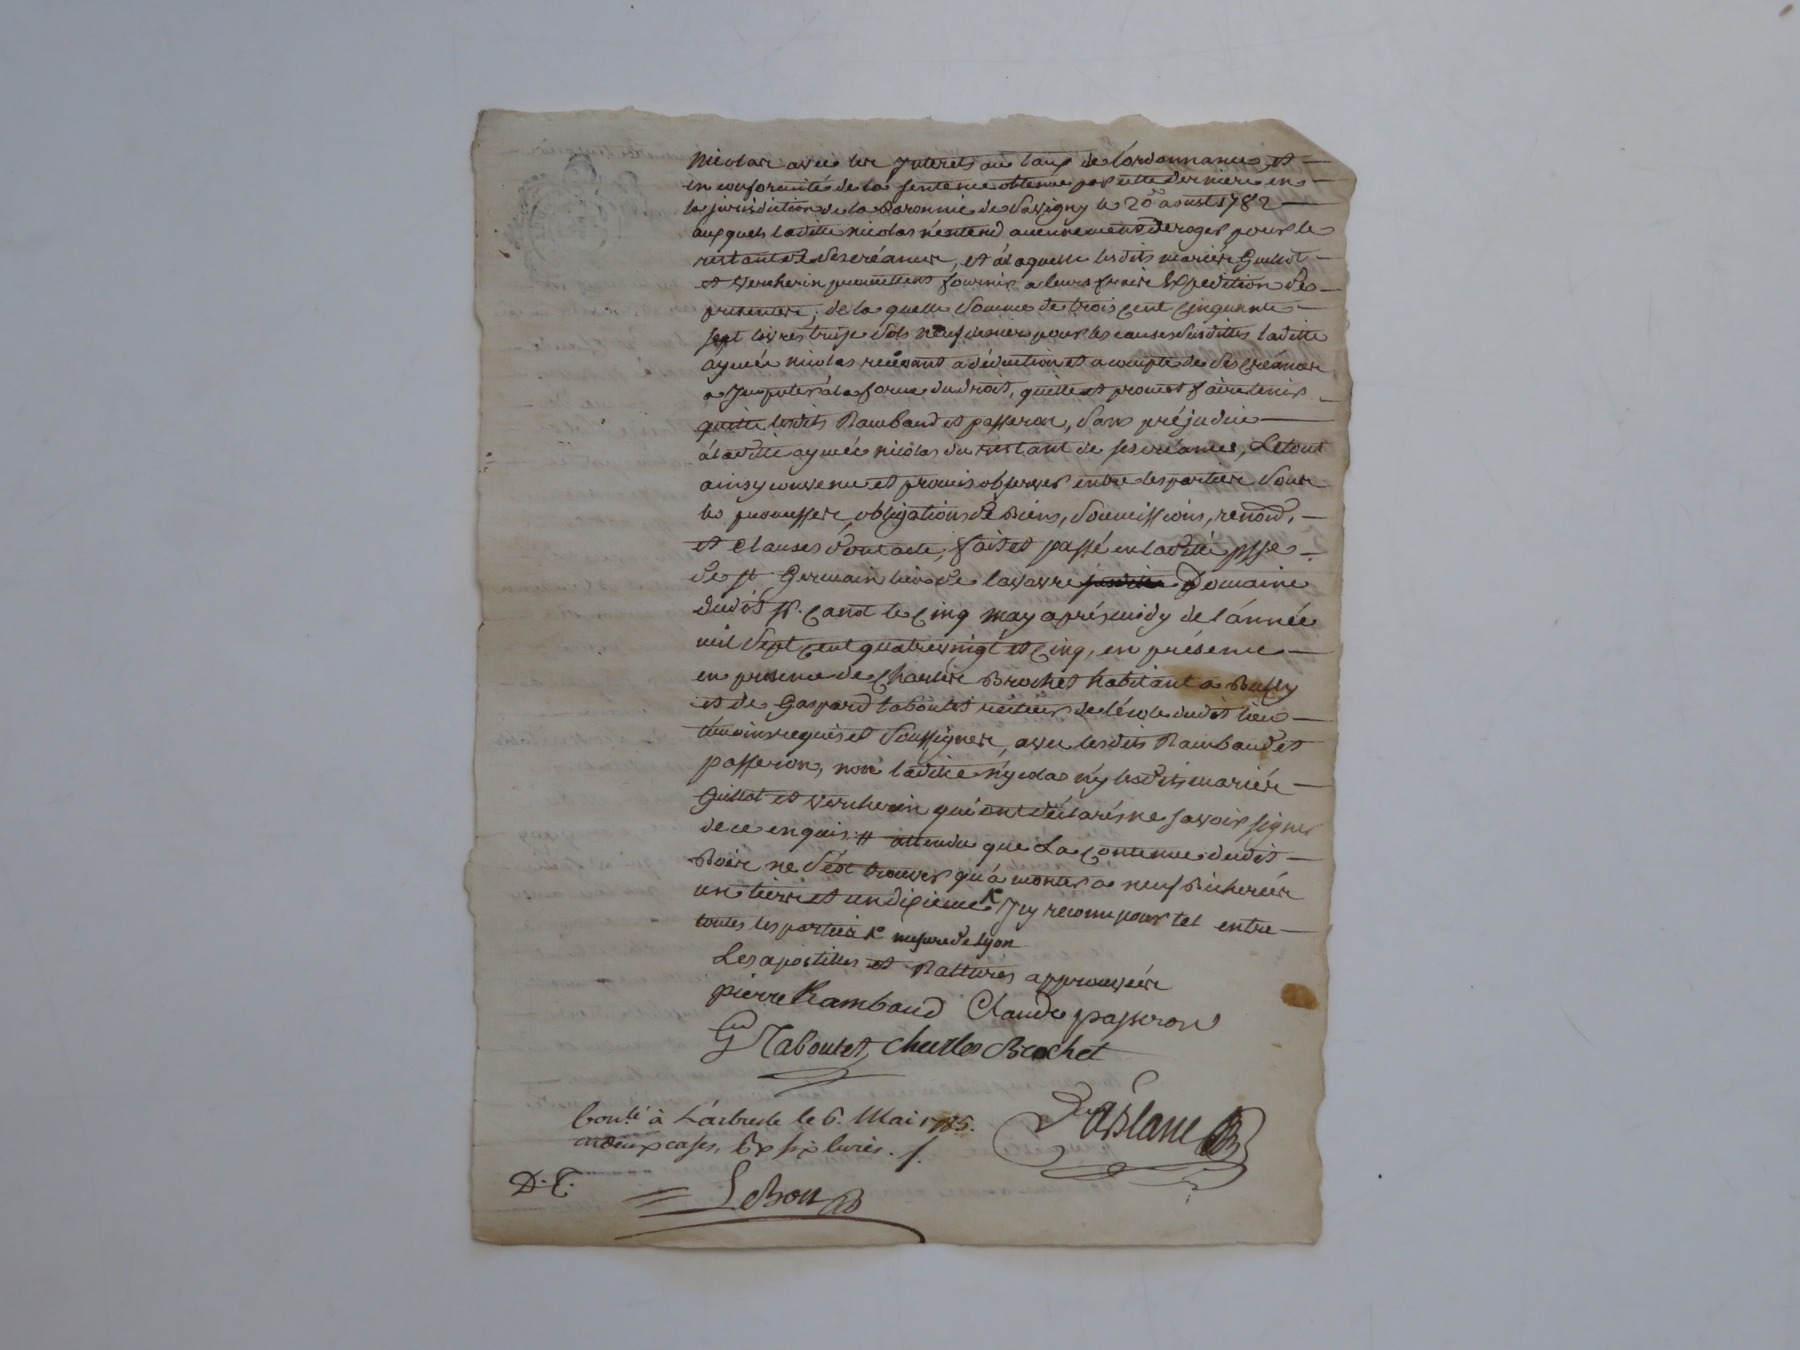 Nicolas avec les Interets au taux de l'ordonnance et
en conformité de la sentence obtenue par cette derniere en
la jurisdiction de la Baronnie de Savigny le 20 aoust 1782
auxquels laditte nicolas n'entend aucunement deroger pour le
restant de ses créances, et à laquelle lesdits mariés Guillot
et Vercherin promettent fournir a leurs fraix Expedition des
presentes; de la quelle somme de trois cent cinquante
sept livres treize sols neuf denier pour les causes susdittes laditte
aymée nicolas recevant a déduction et a compte de ses créances
a Imputer à la forme du droit, quitte et promet faire tenir
quitte lesdits Rambaud et passeron, sans préjudice
à laditte aymée nicolas du restant de ses créances, Le tout
ainsy convenu et promis observer entre les parties sous
les promesses, obligations de Biens, soumissions, renond.
et clauses dont acte; fait et passé en laditte psse
de st Germain lieu de lavavre Domaine
dudit sr. Canot le cinq may après midy de l'année
mil sept cent quatre vingt et cinq, en présence
en presence de Charles Brochet habitant a Bully
et de Gaspard taboulet recteur de lécole dudit lieu
témoins requis et soussignés, avec lesdits Rambaud et
passeron, non laditte nycolas ny lesdits mariés
Guillot et Vercherin qui ont déclarés ne savoir signer
de ce enquis. # attendu que La contenue dudit
Bois ne s'est trouver qu'a monter a neuf Bicherées
un tiers et un dixieme Icy reconu pour tel entre
toutes les parties mesure de Lyon
Les apostilles et Rattures approuvées
pierre Rambaud Claude passeron
G Taboulet, charles Brochet
Contlé à L'arbresle le 6. Mai 1785.
six livres.
Duasblanc
D. T.
LeBon